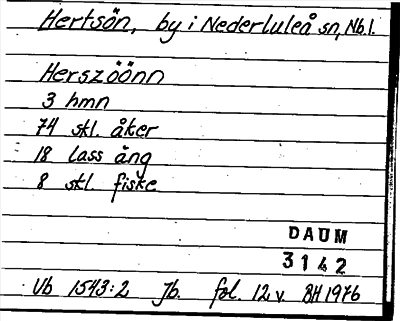 Hertsön, by i Nederluleå sn, Nb.l.
Herszöönn
3 hmn
74 skl. åker
18 lass äng
8 skl. fiske
DAUM
3142
Vb 1543:2 Jb. fol. 12 v BH 1976